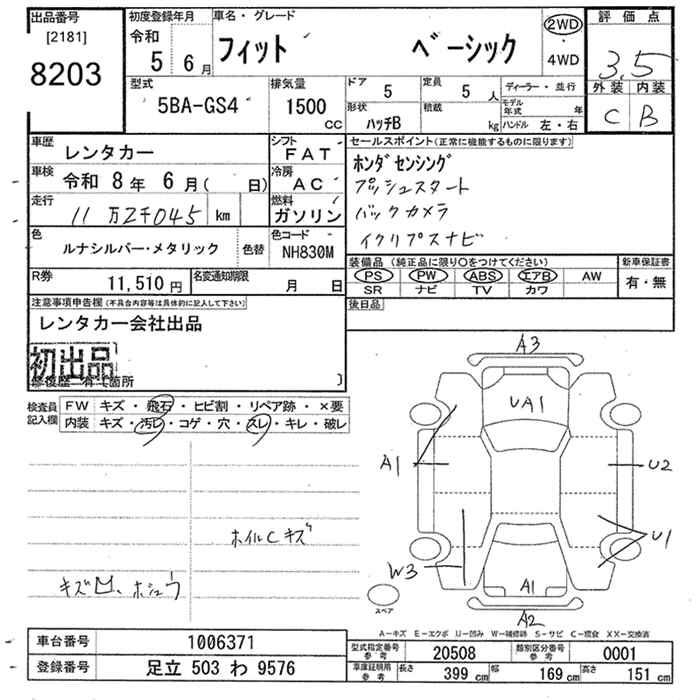 出品番号
[2181]
8203
初度登録年月
令和
5 6月
車名・グレード
フィット ベーシック
2WD
4WD
評価点
3.5
外装 内装
C B
型式
5BA-GS4
排気量
1500
CC
ドア
5
定員
5 人
形状
ハッチB
積載
kg
ディーラー・並行
モデル年式 年
ハンドル 左・右
車歴
レンタカー
シフト
FAT
車検
令和 8年 6月( 日)
冷房
AC
走行
11万2千045 km
燃料
ガソリン
色
ルナシルバー・メタリック
色替
色コード
NH830M
R券
11,510 円
名変通知期限
月 日
セールスポイント(正常に機能するものに限ります)
ホンダセンシング
プッシュスタート
バックカメラ
イクリプスナビ
装備品 (純正品に限り○をつけてください)
PS PW ABS エアB AW
SR ナビ TV カワ
新車保証書
有・無
後日品
注意事項申告欄(不具合内容等は具体的に記入して下さい)
レンタカー会社出品
初出品
)
検査員
記入欄
FW キズ・飛石・ヒビ割・リペア跡・×要
内装 キズ・汚レ・コゲ・穴・スレ・キレ・破レ
ホイルCキズ
A3
UA1
A1
U2
U1
W3
A1
A2
スペア
A-キズ E-エクボ U-凹み W-補修跡 S-サビ C-腐食 XX-交換済
車台番号
1006371
登録番号
足立 503 わ 9576
型式指定番号
参考
20508
類別区分番号
参考
0001
車庫証明用
参考
長さ
399 cm
幅
169 cm
高さ
151 cm